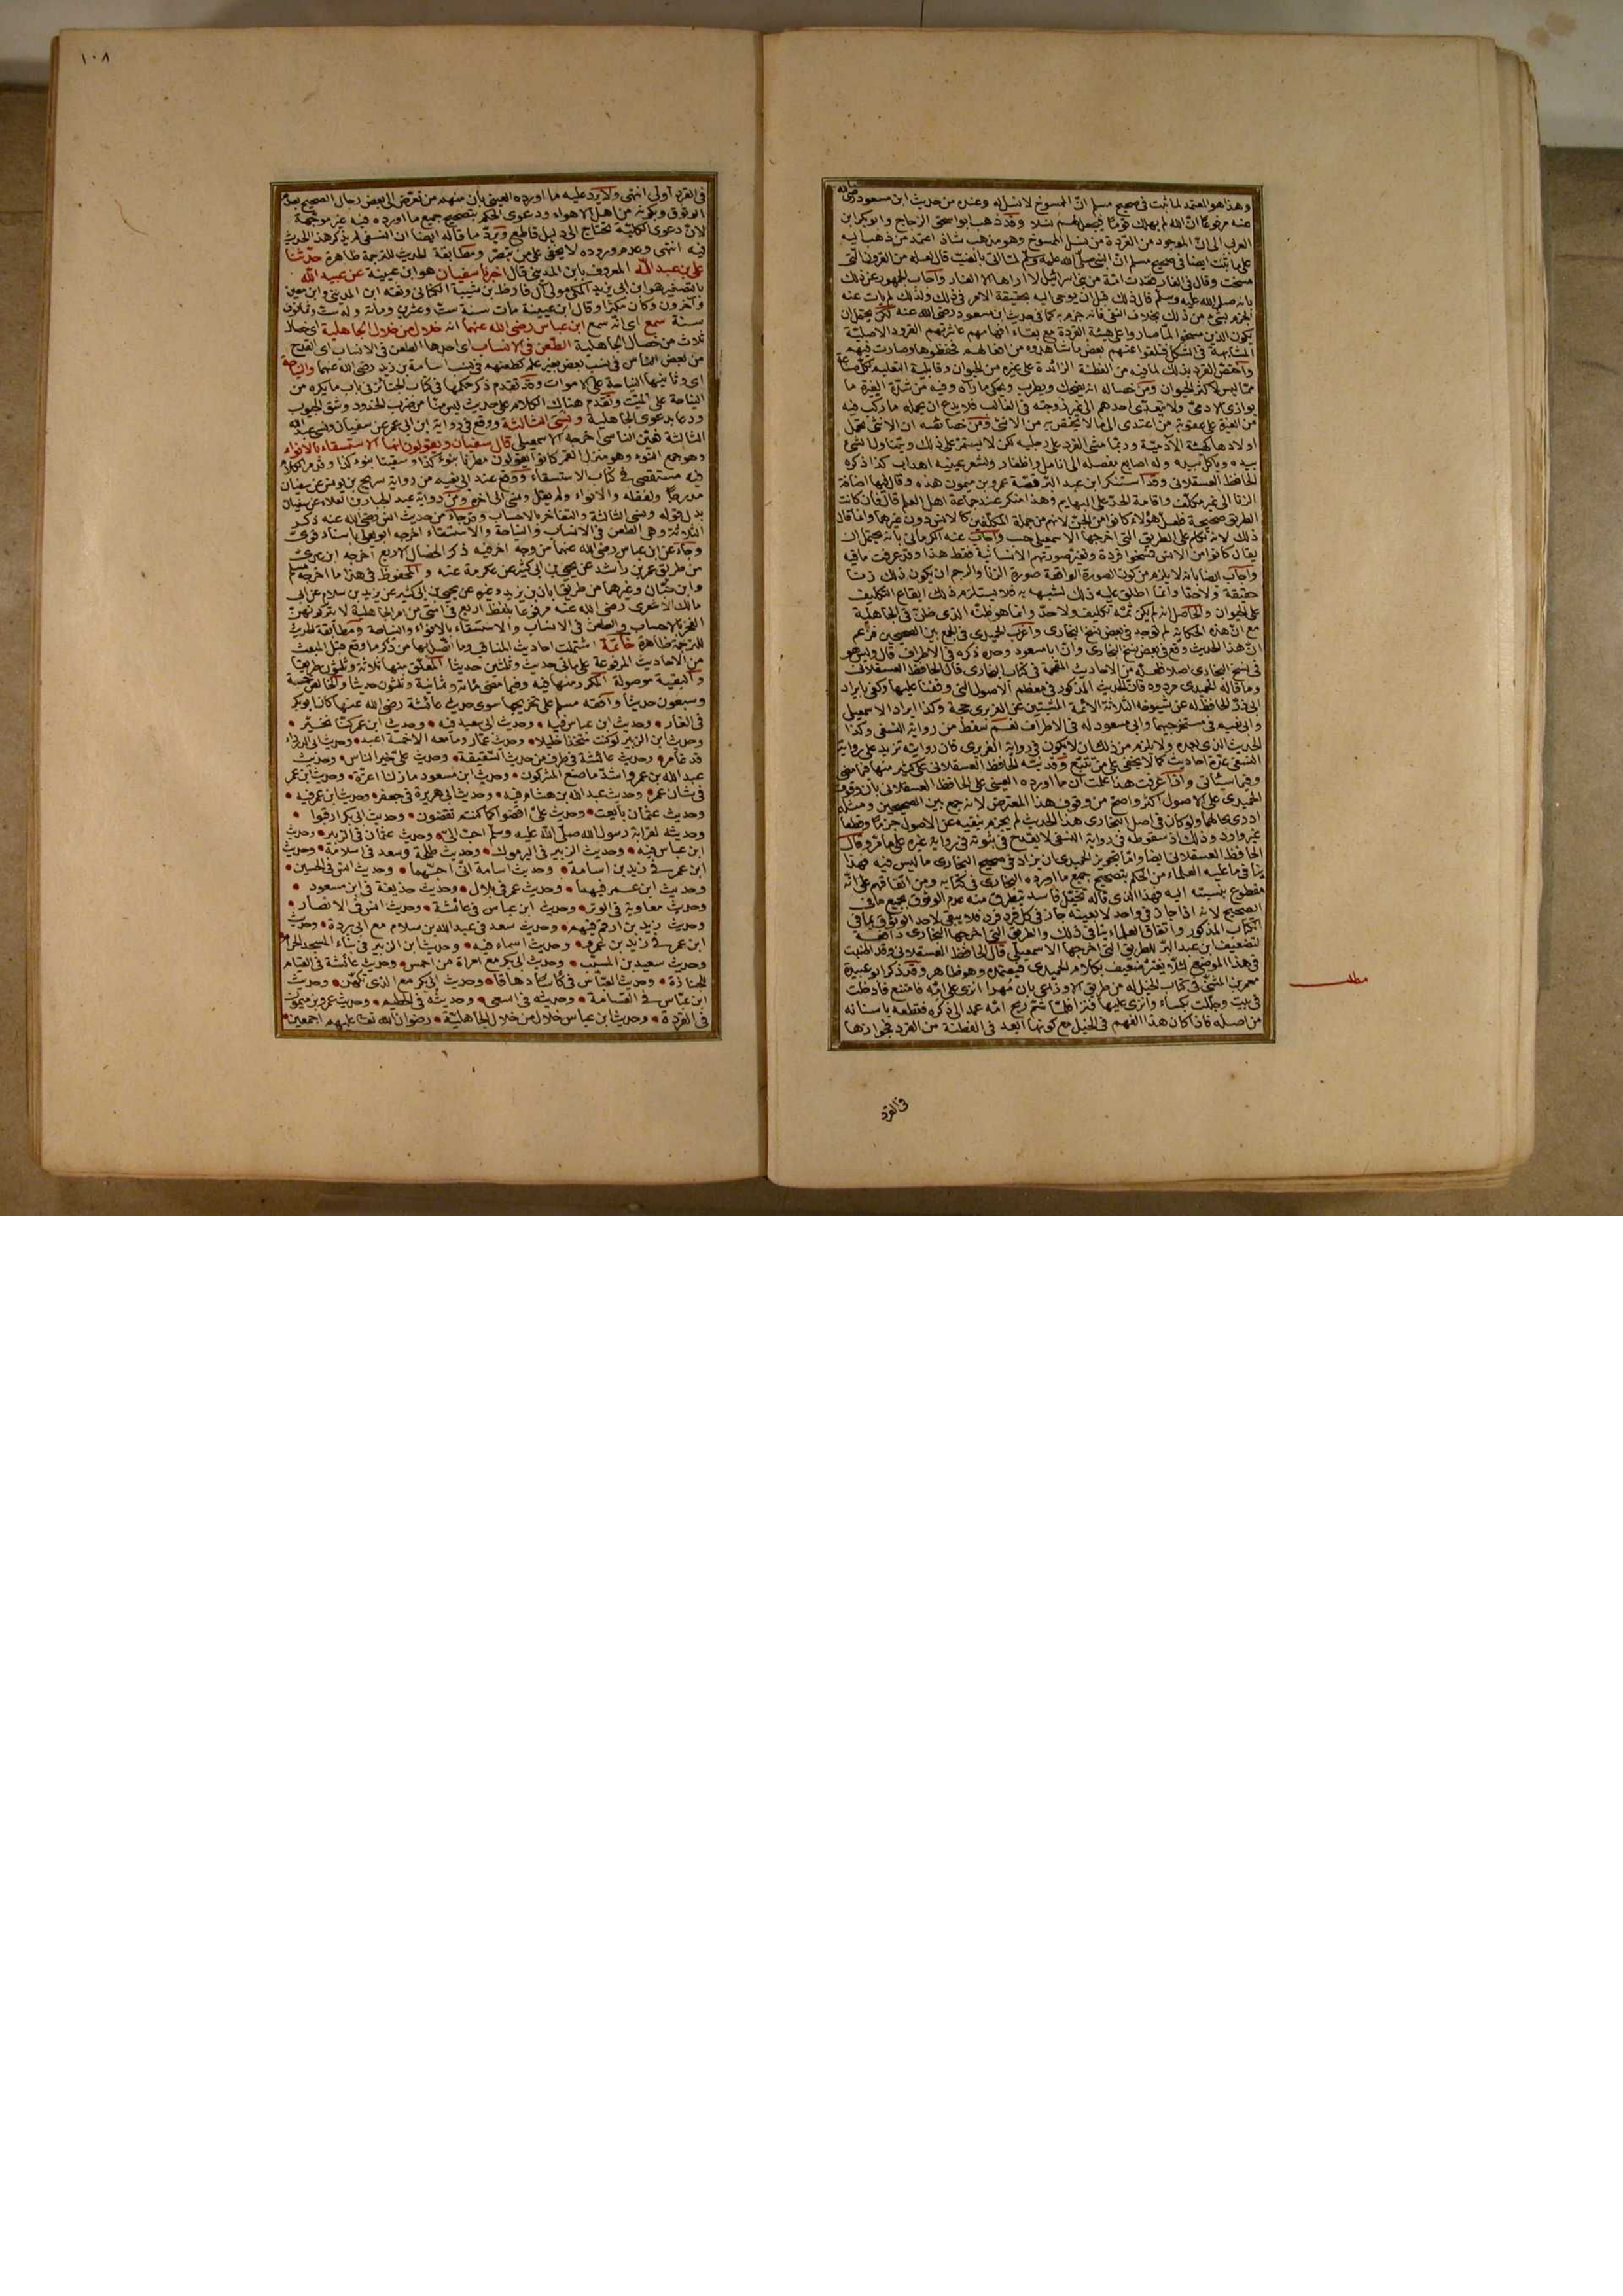 وهذا هو المعتمد لما ثبت في صحيح مسلم انّ الممسوخ لا نسل له وعنده من حديث ابن مسعود رضى الله
عنه مرفوعًا انّ الله لم يهلك قومًا فيجعل لهم نسلا وقد ذهب ابو اسحق الزجاج وابو بكر ابن
العربى الى انّ الموجود من القردة من نسل الممسوخ وهو مذهب شاذ اعتمد من ذهب اليه
على ما ثبت ايضا في صحيح مسلم انّ النبى صلى الله عليه وسلم لما اتى بالضب قال لعله من القرون التى
مسخت وقال في الفار فقدت امّة من بنى اسرائيل لا اراها الا الفار واجاب الجمهور عن ذلك
بانه صلى الله عليه وسلم قال ذلك قبل ان يوحى اليه بحقيقة الامر في ذلك ولذلك لم يات عنه
الجزم بشئ من ذلك بخلاف النفى فانه جزم به كما في حديث ابن مسعود رضى الله عنه لكن يحتمل ان
يكون الذين مسخوا لما صاروا على هيئة القردة مع بقاء افهامهم عاشرتهم القرود الاصلية
المشابهة في الشكل فتلقوا عنهم بعض ما شاهدوه من افعالهم فحفظوها وصارت فيهم
واختص القرد بذلك لما فيه من الفطنة الزائدة على غيره من الحيوان وقابلية التعليم لكل صناعة
ممّا ليس لاكثر الحيوان ومن خصاله انه يضحك ويطرب ويحكى ما رآه وفيه من شدّة الغيرة ما
يوازى الآدمىّ ولا يتعدّى احدهم الى غير زوجته في الغالب فلا يدع ان يحمله ما ركب فيه
من الغيرة على عقوبة من اعتدى الى ما لا يختص به من الانثى ومن خصائصه ان الانثى تحمل
اولادها كهيئة الآدميّة وربّما مشى القرد على رجليه لكن لا يستمر على ذلك ويتناول الشئ
بيده وياكل بيده وله اصابع مفصلة الى انامل واظفار ولشعر عينيه اهداب كذا ذكره
الحافظ العسقلانى وقد استنكر ابن عبد البرّ قصّة عمرو بن ميمون هذه وقال فيها اضافة
الزنا الى غير مكلّف واقامة الحدّ على البهايم وهذا منكر عند جماعة اهل العلم قال فان كانت
الطريق صحيحة فلعل هؤلاء كانوا من الجنّ لانهم من جملة المكلّفين كالانس دون غيرهما وانما قال
ذلك لانه تكلم على الطريق التى اخرجها الاسمعيلى حسب واجاب عنه الكرمانى بانه يحتمل ان
يقال كانوا من الانس فمسخوا قردة وتغير صورتهم الانسانية فقط هذا وقد عرفت ما فيه
واجاب ايضا بانه لا يلزم من كون الصورة الواقعة صورة الزنا والرجم ان يكون ذلك زنًا
حقيقة ولا حدّا وانما اطلق عليه ذلك لشبهه به فلا يستلزم ذلك ايقاع التكليف
على الحيوان والحاصل انه لم يكن ثمّة تكليف ولا حدّ وانما هو ظنّه الذى ظنّ في الجاهلية
مع انّ هذه الحكاية لم توجد في بعض نسخ البخارى واغرب الحميدى في الجمع بين الصحيحين فزعم
انّ هذا الحديث وقع في بعض نسخ البخارى وانّ ابا مسعود وحده ذكره في الاطراف قال وليس هو
في نسخ البخارى اصلا فلعلّه من الاحاديث المقحمة في كتاب البخارى قال الحافظ العسقلانى
وما قاله الحميدى مردود فان الحديث المذكور في معظم الاصول التى وقفنا عليها وكفى بايراد
ابى ذرّ الحافظ له عن شيوخه الثلاثة الائمة المتقنين عن الفربرى حجة وكذا ايراد الاسمعيلى
وابى نعيم في مستخرجيهما وابى مسعود له في الاطراف نعم سقط من رواية النسفى وكذا
الحديث الذى بعده ولا يلزم من ذلك ان لا يكون في رواية الفربرى فان روايته تزيد على رواية
النسفى عدّة احاديث كما لا يخفى على من تتبع وقد نبّه الحافظ العسقلانى على كثير منها فيما مضى
وفيما سيأتى واذا عرفت هذا علمت ان ما اورده العينى على الحافظ العسقلانى بان وقوف
الحميدى على الاصول اكثر واصحّ من وقوف هذا المعترض لانه جمع بين الصحيحين ومثله
ادرى بحالهما ولو كان في اصل البخارى هذا الحديث لم يجزم بنفيه عن الاصول جزمًا وقطعا
غير وارد وذلك اذ سقوطه في رواية النسفى لا يقدح في ثبوته في رواية غيره على ما مرّ وقال
الحافظ العسقلانى ايضا وامّا تجويز الحميدى ان يزاد في صحيح البخارى ما ليس فيه فهذا
ينافى ما عليه العلماء من الحكم بتصحيح جميع ما اورده البخارى في كتابه ومن اتفاقهم على انّه
مقطوع بنسبته اليه فهذا الذى قاله تخيّل فاسد يتطرق منه عدم الوثوق بجميع ما في
الصحيح لانه اذا جاز في واحد لا بعينه جاز في كل فرد فرد فلا يبقى لاحد الوثوق بما في
الكتاب المذكور واتفاق العلماء ينافى ذلك والطريق التى اخرجها البخارى دافعة
لتضعيف ابن عبد البرّ للطريق التى اخرجها الاسمعيلى قال الحافظ العسقلانى وقد اطنبت
في هذا الموضع لئلّا يغترّ ضعيف بكلام الحميدى فيعتمده وهو ظاهر وقد ذكر ابو عبيدة
معمر بن المثنّى في كتاب الخيل له من طريق الاوزاعى بان مُهرا انزى على امّه فامتنع فادخلت
في بيت وجلّلت بكساء وانزى عليها فنزا فلمّا شم ريح امّه عمد الى ذكره فقطعه باسنانه
من اصله فاذا كان هذا الفهم في الخيل مع كونها ابعد في الفطنة من القرد فجوازها
مطلب
في القرد
١٠٨
في القرد اولى انتهى ولا يرد عليه ما اورده العينى بان منهم من تعرّض الى بعض رجال الصحيح بعدم
الوثوق وبكونه من اهل الاهواء ودعوى الحكم بتصحيح جميع ما اورده فيه غير موجّهة
لانّ دعوى الكليّة تحتاج الى دليل قاطع ويردّ ما قاله ايضا ان النسفى لم يذكر هذا الحديث
فيه انتهى وعدم وروده لا يخفى على من تبصّر ومطابقة الحديث للترجمة ظاهرة حدّثنا
على بن عبد الله المعروف بابن المدينى قال اخبرنا سفيان هو ابن عيينة عن عبيد الله
بالتصغير هو ابن ابى يزيد المكى مولى آل قارظ بن شيبة الكنانى وثقه ابن المدينى وابن معين
وآخرون وكان مكثرا وقال ابن عيينة مات سنة ستّ وعشرين ومائة وله ستّ وثمانون
سنة سمع اى انّه سمع ابن عباس رضى الله عنهما انه خلال من خلال الجاهلية اى خصال
ثلاث من خصال الجاهلية الطعن في الانساب اى احدها الطعن في الانساب اى القدح
من بعض الناس في نسب بعض بغير علم كطعنهم في نسب اسامة بن زيد رضى الله عنهما والنياحة
اى وثانيها النياحة على الاموات وقد تقدم ذكر حكمها في كتاب الجنائز في باب ما يكره من
النياحة على الميّت وتقدّم هناك الكلام على حديث ليس منّا من ضرب الخدود وشق الجيوب
ودعا بدعوى الجاهلية ونسى الثالثة ووقع في رواية ابن ابى عمر عن سفيان ونسى عبيد الله
الثالثة فعيّن الناسى اخرجه الاسمعيلى قال سفيان ويقولون انها الاستسقاء بالانواء
وهو جمع النوء وهو منزل القمر كانوا يقولون مطرنا بنوء كذا وسقينا بنوء كذا وقد مر الكلام
فيه مستقصى في كتاب الاستسقاء ووقع عند ابى نعيم من رواية سريج بن يونس عن سفيان
مدرجًا ولفظه والانواء ولم يقل ونسى الى آخره ومن رواية عبد الجبار بن العلاء عن سفيان
بدل قوله ونسى الثالثة والتفاخر بالاحساب وقد جاء من حديث انس رضى الله عنه ذكر
الثلاثة وهى الطعن في الانساب والنياحة والاستسقاء اخرجه ابو يعلى باسناد قوىّ
وجاء عن ابن عباس رضى الله عنهما من وجه آخر فيه ذكر الخصال الاربع اخرجه ابن عدىّ
من طريق عمر بن راشد عن يحيى بن ابى كثير عن عكرمة عنه والمحفوظ في هذا ما اخرجه مسلم
وابن حبّان وغيرهما من طريق ابان بن يزيد وغيره عن يحيى بن ابى كثير عن زيد بن سلام عن ابى
مالك الاشعرى رضى الله عنه مرفوعًا بلفظ اربع في امّتى من امر الجاهلية لا يتركونهنّ
الفخر بالاحساب والطعن في الانساب والاستسقاء بالانواء والنياحة ومطابقة الحديث
للترجمة ظاهرة خاتمة اشتملت احاديث المناقب وما اتّصل بها من ذكر ما وقع قبل المبعث
من الاحاديث المرفوعة على مائى حديث وثلثين حديثا المعلّق منها ثلاثة وثلثون طريقا
والبقية موصولة المكرر منها فيه وفيما مضى مائة وثمانية وثلثون حديثا والخالص خمسة
وتسعون حديثا وافقه مسلم على تخريجها سوى حديث عائشة رضى الله عنها كان ابو بكر
في الغار • وحديث ابن عباس فيه • وحديث ابى سعيد فيه • وحديث ابن عمر كنّا نخيّر •
وحديث ابن الزبير لو كنت متّخذا خليلا • وحديث عمّار وما معه الا خمسة اعبد • وحديث ابى الدرداء
قد غامر • وحديث عائشة في طرف من حديث السقيفة • وحديث علىّ خير الناس • وحديث
عبد الله بن عمرو اشدّ ما صنع المشركون • وحديث ابن مسعود ما زلنا اعزّة • وحديث ابن عمر
في شان عمر • وحديث عبد الله بن هشام فيه • وحديث ابى هريرة في جعفر • وحديث ابن عمر فيه •
وحديث عثمان بايعت • وحديث علىّ اقضوا كما كنتم تقضون • وحديث ابى بكر ارقبوا •
وحديثه لقرابة رسول الله صلى الله عليه وسلم احبّ الىّ • وحديث عثمان في الزبير • وحديث
ابن عباس فيه • وحديث الزبير في اليرموك • وحديث طلحة وسعد في اسلامه • وحديث
ابن عمر في زيد بن اسامة • وحديث اسامة انّى احبّهما • وحديث انس في الحسين •
وحديث ابن عمر فيهما • وحديث عمر في بلال • وحديث حذيفة في ابن مسعود •
وحديث معاوية في الوتر • وحديث ابن عباس في عائشة • وحديث انس في الانصار •
وحديث زيد بن ارقم فيهم • وحديث سعد في عبد الله بن سلام مع ابى بردة • وحديث
ابن عمر في زيد بن عمرو • وحديث اسماء فيه • وحديث ابن الزبير في بناء المسجد الحرام
وحديث سعيد بن المسيّب • وحديث ابى بكر مع امراة من احمس • وحديث عائشة في القيام
للجنازة • وحديث العبّاس في كأسًا دهاقًا • وحديث ابى بكر مع الذى تكهّن • وحديث
ابن عبّاس في القسامة • وحديثه في السعى • وحديثه في الحطيم • وحديث عمرو بن ميمون
في القردة • وحديث ابن عباس خلال من خلال الجاهليّة • رضوان الله تعالى عليهم اجمعين •